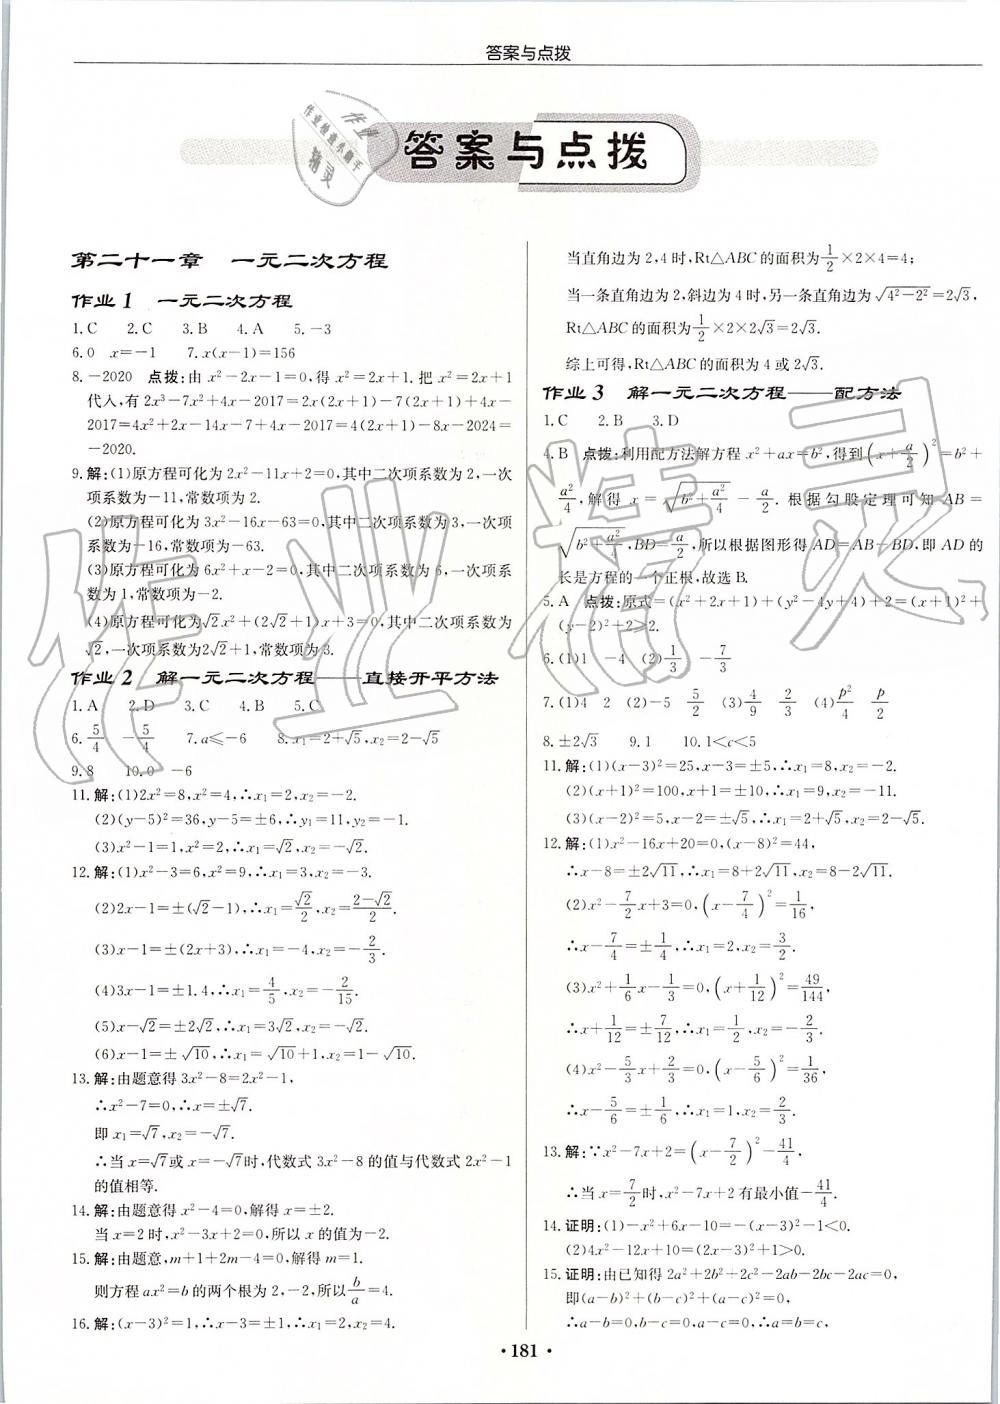 答案与点拨
作业
作业检查小助手
精灵
答案与点拨
第二十一章 一元二次方程
作业1 一元二次方程
1.C 2.C 3.B 4.A 5.-3
6.0 x=-1 7.x(x-1)=156
8.-2020 点拨:由 x²-2x-1=0,得 x²=2x+1.把 x²=2x+1
代入,有 2x³-7x²+4x-2017=2x(2x+1)-7(2x+1)+4x-
2017=4x²+2x-14x-7+4x-2017=4(2x+1)-8x-2024=
-2020.
9.解:(1)原方程可化为 2x²-11x+2=0,其中二次项系数为2,一次
项系数为-11,常数项为2.
(2)原方程可化为 3x²-16x-63=0,其中二次项系数为3,一次项
系数为-16,常数项为-63.
(3)原方程可化为 6x²+x-2=0,其中二次项系数为6,一次项系
数为1,常数项为-2.
(4)原方程可化为√2x²+(2√2+1)x+3=0,其中二次项系数为
√2,一次项系数为2√2+1,常数项为3.
作业2 解一元二次方程——直接开平方法
1.A 2.D 3.C 4.B 5.C
6.5/4 -5/4 7.a≤-6 8.x₁=2+√5,x₂=2-√5
9.8 10.0 -6
11.解:(1)2x²=8,x²=4,∴x₁=2,x₂=-2.
(2)(y-5)²=36,y-5=±6,∴y₁=11,y₂=-1.
(3)x²-1=1,x²=2,∴x₁=√2,x₂=-√2.
12.解:(1)x²-3=6,x²=9,∴x₁=3,x₂=-3.
(2)2x-1=±(√2-1),∴x₁=√2/2,x₂=(2-√2)/2.
(3)x-1=±(2x+3),∴x₁=-4,x₂=-2/3.
(4)3x-1=±1.4,∴x₁=4/5,x₂=-2/15.
(5)x-√2=±2√2,∴x₁=3√2,x₂=-√2.
(6)x-1=±√10,∴x₁=√10+1,x₂=1-√10.
13.解:由题意得 3x²-8=2x²-1,
∴x²-7=0,∴x=±√7.
即 x₁=√7,x₂=-√7.
∴当 x=√7或 x=-√7时,代数式 3x²-8 的值与代数式 2x²-1
的值相等.
14.解:由题意得 x²-4=0,解得 x=±2.
当 x=2时,x²-3x+2=0,所以 x 的值为-2.
15.解:由题意,m+1+2m-4=0,解得 m=1.
则方程 ax²=b 的两个根为2,-2,所以b/a=4.
16.解:(x-3)²=1,∴x-3=±1,∴x₁=2,x₂=4.
当直角边为2,4时,Rt△ABC 的面积为1/2×2×4=4;
当一条直角边为2,斜边为4时,另一条直角边为√(4²-2²)=2√3,
Rt△ABC 的面积为1/2×2×2√3=2√3.
综上可得,Rt△ABC 的面积为4或2√3.
作业3 解一元二次方程——配方法
1.C 2.B 3.D
4.B 点拨:利用配方法解方程 x²+ax=b²,得到(x+a/2)²=b²+
a²/4,解得 x=√(b²+a²/4)-a/2.根据勾股定理可知 AB=
√(b²+a²/4),BD=a/2,所以根据图形得 AD=AB-BD,即 AD 的
长是方程的一个正根,故选B.
5.A 点拨:原式=(x²+2x+1)+(y²-4y+4)+2=(x+1)²+
(y-2)²+2≥2.
6.(1)1 -4 (2)1/3 -7/3
7.(1)4 2 (2)-5 5/2 (3)4/9 2/3 (4)p²/4 p/2
8.±2√3 9.1 10.1<c<5
11.解:(1)(x-3)²=25,x-3=±5,∴x₁=8,x₂=-2.
(2)(x+1)²=100,x+1=±10,∴x₁=9,x₂=-11.
(3)(x-2)²=5,x-2=±√5,∴x₁=2+√5,x₂=2-√5.
12.解:(1)x²-16x+20=0,(x-8)²=44,
∴x-8=±2√11,∴x₁=8+2√11,x₂=8-2√11.
(2)x²-7/2x+3=0,(x-7/4)²=1/16,
∴x-7/4=±1/4,∴x₁=2,x₂=3/2.
(3)x²+1/6x-1/3=0,(x+1/12)²=49/144,
∴x+1/12=±7/12,∴x₁=1/2,x₂=-2/3.
(4)x²-5/3x+2/3=0,(x-5/6)²=1/36,
∴x-5/6=±1/6,∴x₁=1,x₂=2/3.
13.解:∵x²-7x+2=(x-7/2)²-41/4,
∴当 x=7/2时,x²-7x+2有最小值-41/4.
14.证明:(1)-x²+6x-10=-(x-3)²-1<0.
(2)4x²-12x+10=(2x-3)²+1>0.
15.证明:由已知得 2a²+2b²+2c²-2ab-2bc-2ac=0,
即(a-b)²+(b-c)²+(a-c)²=0,
∴a-b=0,b-c=0,a-c=0,∴a=b=c,
·181·
作业精灵